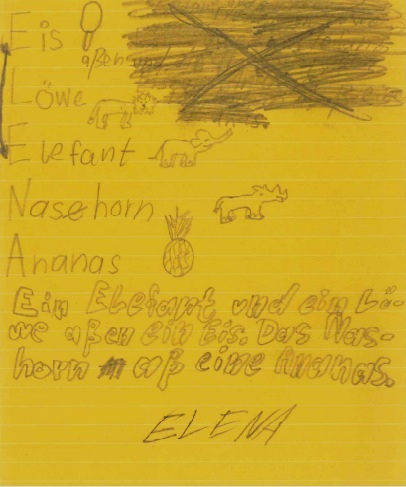 Eis
aßen und ein
Löwe
Elefant
Nasehorn
Ananas
Ein Elefant und ein Lö-
we aßen ein Eis. Das Nas-
horn aß eine Ananas.
ELENA